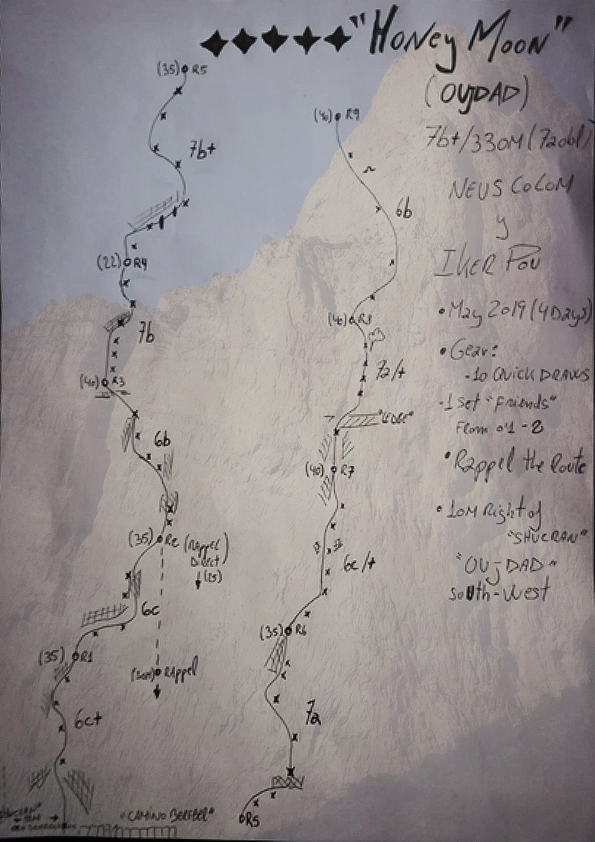 "Honey Moon"
(OUJDAD)
7b+/330M (7a obl)
NEUS COLOM
y
IKER POU
• May 2019 (4 Days)
• Gear:
-10 QUICK DRAWS
-1 Set "Friends"
From 0'1 - 2
• Rappel the Route
• 10M Right of
"SHUCRAN"
"OUJDAD"
South-West
(35) R5
7b+
(22) R4
7b
(40) R3
6b
(35) R2 (Rappel
Direct
(25)
6c
(35) R1
Rappel
6c+
"CAMINO BEREBER"
(40) R9
6b
(40) R8
7a/+
"LEDGE"
(40) R7
6c/+
(35) R6
7a
R5